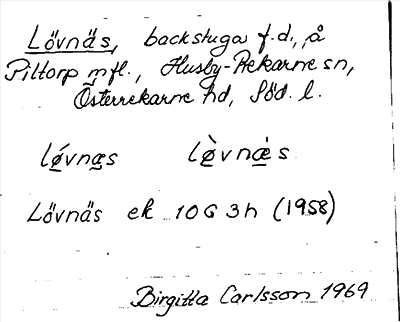 Lövnäs, backstuga f.d., å
Piltorp m.fl., Husby-Rekarne sn,
Österrekarne hd, Söd. l.
lǿvnæs lø̀vnæ̀s
Lövnäs ek 10G 3h (1958)
Birgitta Carlsson 1969